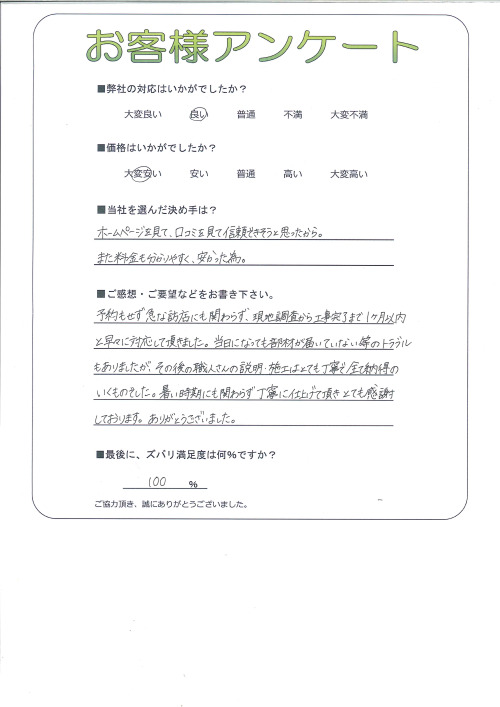 お客様アンケート
■弊社の対応はいかがでしたか？
大変良い 良い 普通 不満 大変不満
■価格はいかがでしたか？
大変安い 安い 普通 高い 大変高い
■当社を選んだ決め手は？
ホームページを見て、口コミを見て信頼できそうと思ったから。
また料金も分かりやすく、安かった為。
■ご感想・ご要望などをお書き下さい。
予約もせず急な訪店にも関わらず、現地調査から工事完了まで1ヶ月以内
と早々に対応して頂きました。当日になっても部材が届いていない等のトラブル
もありましたが、その後の職人さんの説明・施工はとても丁寧で全て納得の
いくものでした。暑い時期にも関わらず丁寧に仕上げて頂きとても感謝
しております。ありがとうございました。
■最後に、ズバリ満足度は何％ですか？
100 ％
ご協力頂き、誠にありがとうございました。